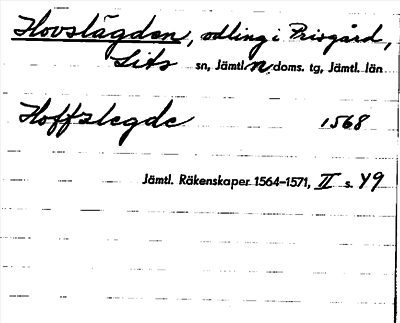 Hovslägden, odling i Prisgård,
Lits sn, Jämtl. n. doms. tg, Jämtl. län
Hoffzlegde 1568
Jämtl. Räkenskaper 1564–1571, II s. 49